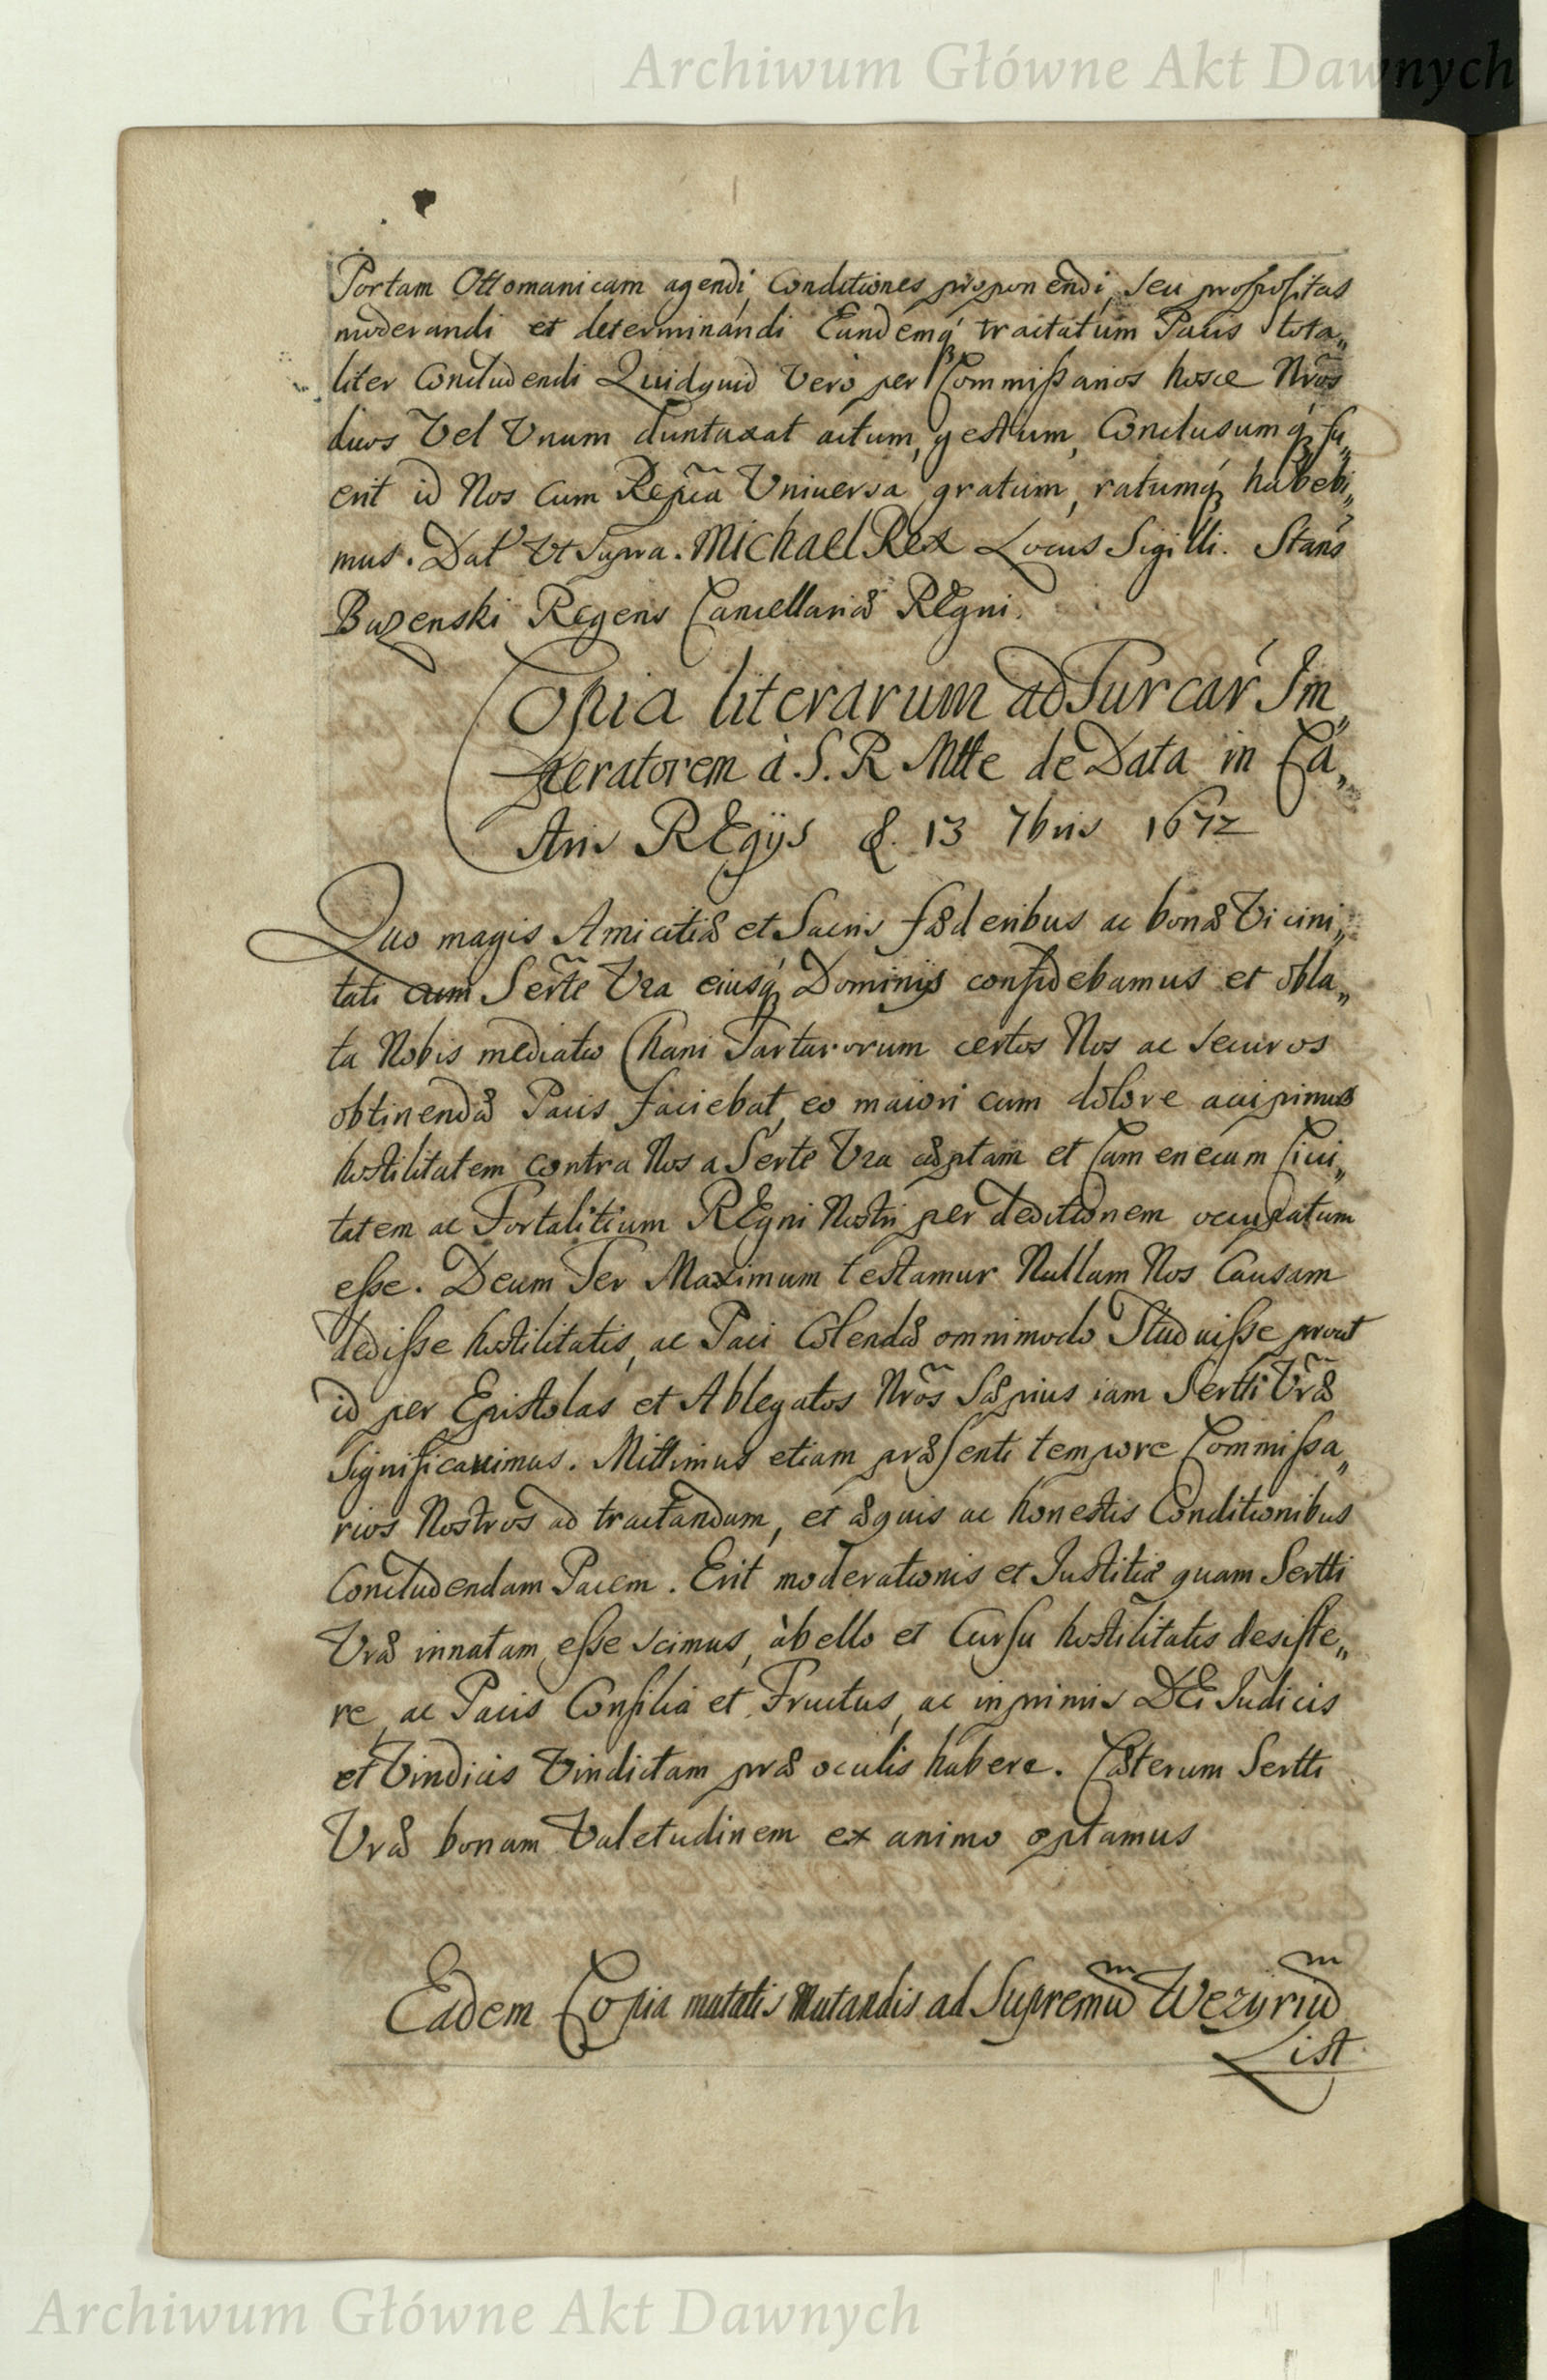 Archiwum Główne Akt Dawnych
Portam Ottomanicam agendi, Conditiones proponendi, seu propositas
moderandi et determinandi Eundemq́ tractatum Pacis tota„
liter Concludendi Quidquid Vero per Commissarios hosce Nr̃os
duos Vel Vnum duntaxat actum, gestum, Conclusumq́ fu„
erit id Nos Cum Rep̃ca Vniuersa gratum, ratumq́ habebi„
mus. Dat Vt Supra. Michael Rex Locus Sigilli. Stans
Buzenski Regens Cancellariæ REgni.
Copia literarum ad Turcar Im„
peratorem à S. R Mtte de Data in Ca„
stris REgijs d. 13 7bris 1672
Quo magis Amicitiæ et Sacris fæderibus ac bonæ Vicini„
tati cum Sertẽ Vra eiusq́ Dominijs confidebamus et obla„
ta Nobis mediatio Chani Tartarorum certos Nos ac securos
obtinendæ Pacis faciebat, eo maiori cum dolore accipimus
hostilitatem contra Nos a Serte Vra cæptam et Camenecum Ciui„
tatem ac Fortalitium REgni Nostri per deditionem occupatum
esse. Deum Ter Maximum testamur Nullam Nos Causam
dedisse hostilitatis, ac Paci Colendæ omnimodo Studuisse prout
id per Epistolas et Ablegatos Nr̃os Sæpius iam Sertti Vr̃æ
Significauimus. Mittimus etiam præsenti tempore Commissa„
rios Nostros ad tractandum, et æquis ac honestis Conditionibus
Concludendam Pacem. Erit moderationis et Iustitiæ quam Sertti
Vræ innatam esse scimus, à bello et Cursu hostilitatis desiste„
re, ac Pacis Consilia et Fructus, ac inprimis DEi Iudicis
et Vindicis Vindictam præ oculis habere. Cæterum Sertti
Vræ bonam Valetudinem ex animo optamus
Eadem Copia mutatis Mutandis ad Supremũ Wezyriũ
List
Archiwum Główne Akt Dawnych